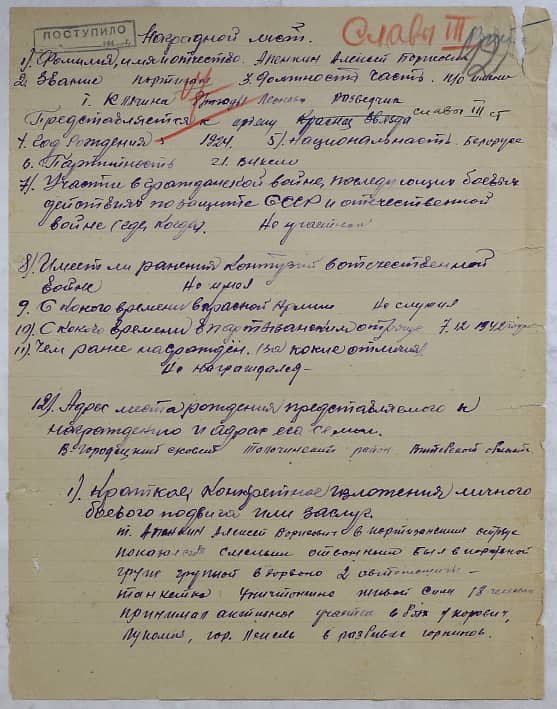 ПОСТУПИЛО
Наградной лист.
Славы III
1). Фамилия, имя и отчество. Апенкин Алексей Борисович
2. Звание партизан 3. Должность часть. п/о имени
т. Ключика Леонова Разведчик
Представляется к ордену Красная звезда Славы III ст
4. Год рождения 1924. 5). Национальность. Белорус
6. Партийность чл. ВЛКСМ
7). Участи в гражданской войне, последующих боевых
действиях по защите СССР и отечественной
войне (где, когда). Не участвовал
8). Имеет ли ранения контузий в отечественной
войне Не имея
9. С какого времени в красной Армии Не служил
10). С какого времени в партизанским отряде 7.12 1942 года
11). Чем ранее награждён. (за какие отличия)
Не награждался—
12). Адрес места рождения представляемого к
награждению и адрес его семьи.
В-Городецкий сковсит Толочинский район Витебской области
1). Краткое, конкретное изложения личного
боевого подвига или заслуг.
т. Апенкин Алексей Борисович в партизанским отряде
показал себя смелым Был в
группой взорвано 2 автомашины—
танкетка Уничтожено живой силы 18 человек
принимал активное участие в боях
Лукомля, гор. Лепель в разгроме гарнизонов.